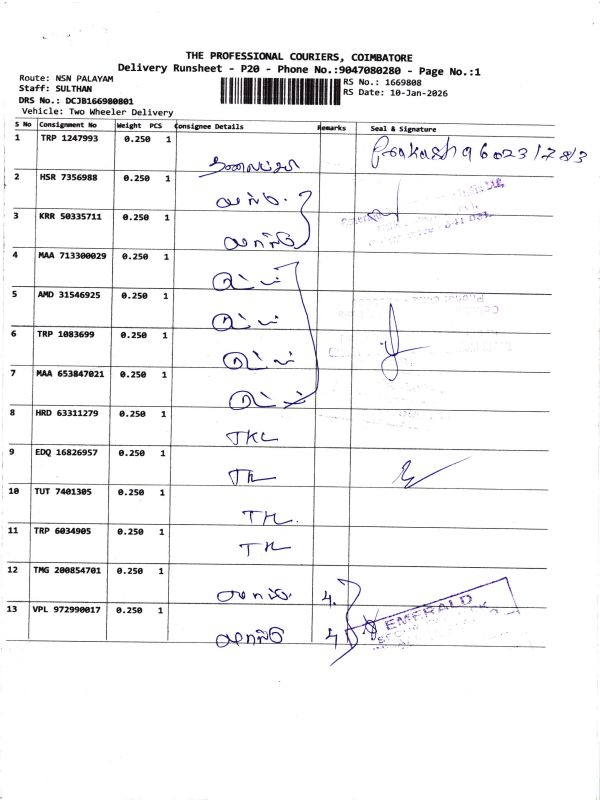 THE PROFESSIONAL COURIERS, COIMBATORE
Delivery Runsheet - P20 - Phone No.:9047080280 - Page No.:1
Route: NSN PALAYAM
RS No.: 1669808
Staff: SULTHAN
RS Date: 10-Jan-2026
DRS No.: DCJB166980801
Vehicle: Two Wheeler Delivery
S No Consignment No Weight PCS Consignee Details Remarks Seal & Signature
1 TRP 1247993 0.250 1
2 HSR 7356988 0.250 1
3 KRR 50335711 0.250 1
4 MAA 713300029 0.250 1
5 AMD 31546925 0.250 1
6 TRP 1083699 0.250 1
7 MAA 653847021 0.250 1
8 HRD 63311279 0.250 1
TKL
9 EDQ 16826957 0.250 1
TK
10 TUT 7401305 0.250 1
TK.
11 TRP 6034905 0.250 1
TK
12 TMG 200854701 0.250 1
4.
13 VPL 972990017 0.250 1
EMERALD